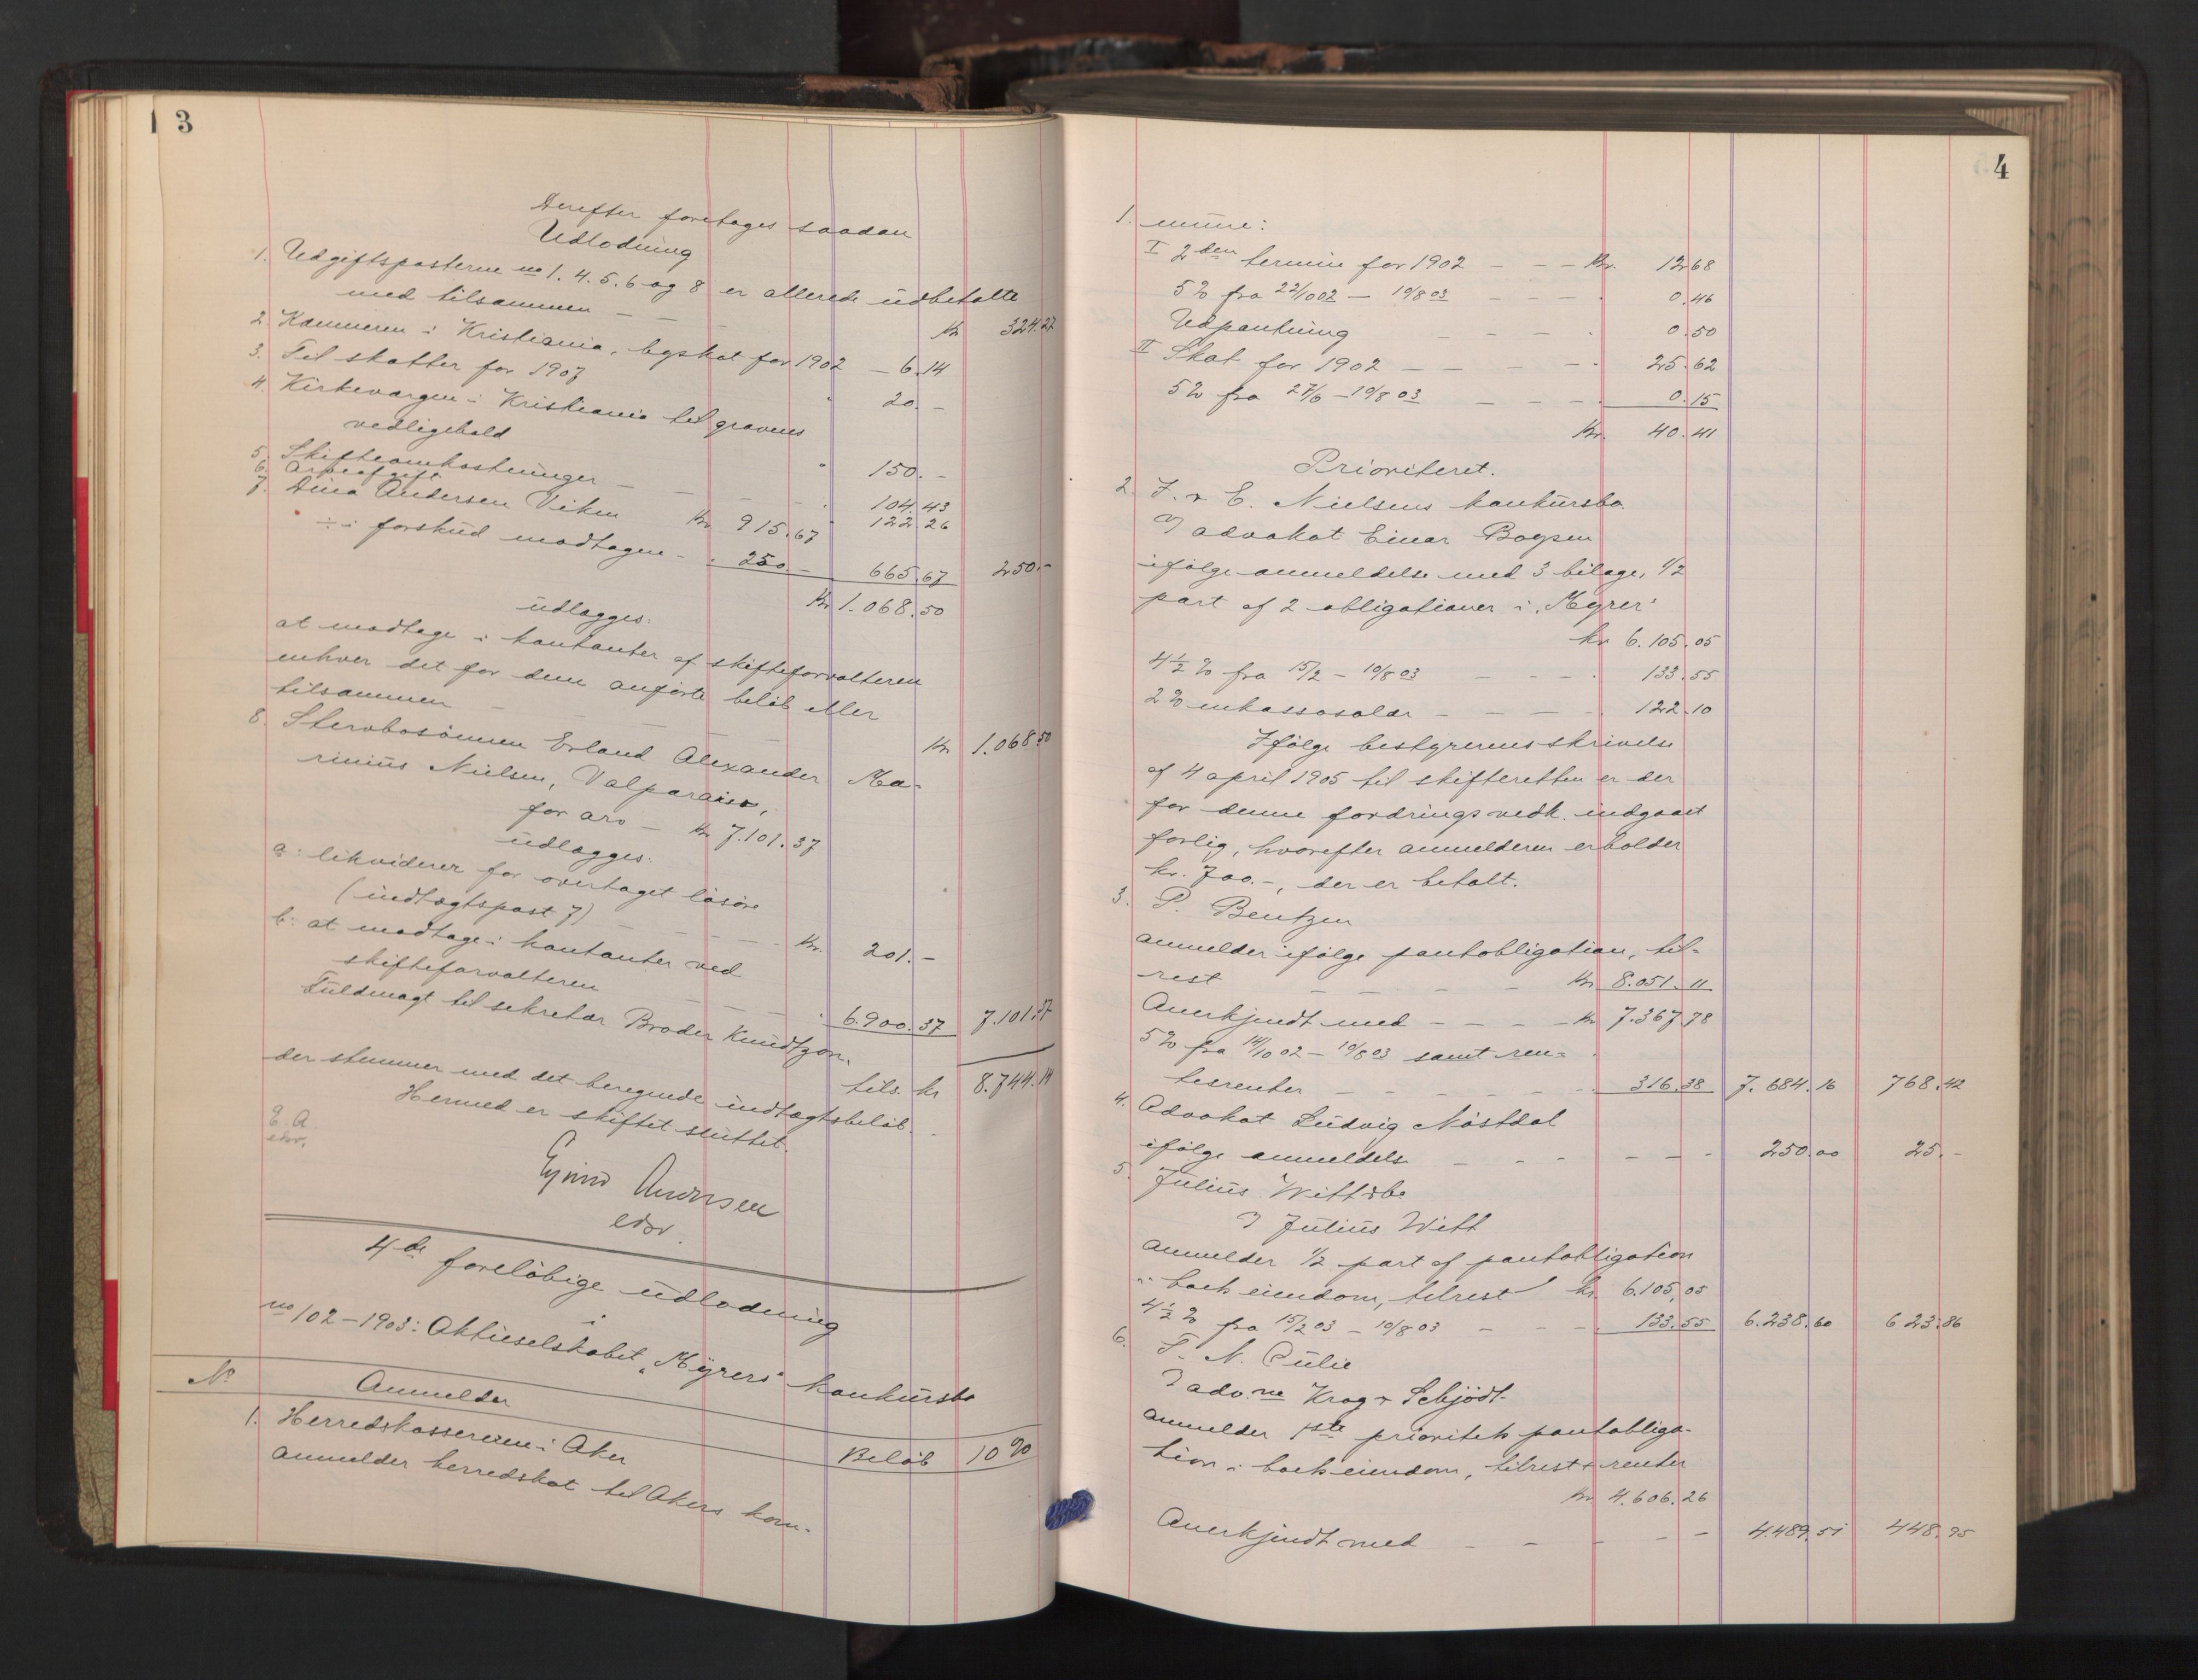 3
Derefter foretages saadan
Udlodning
1. Udgiftsposterne no 1. 4. 5. 6 og 8 er allerede udbetalte
med tilsammen — — — Kr 324.27
2. Kæmneren i Kristiania, byskat for 1902 — 6.14
3. Til skatter for 1907 " 20.–
4. Kirkevargen i Kristiania til gravens
vedligehold " 150.–
5. Skifteomkostninger — — — " 104.43
6. Arveafgift " 122.26
7. Dina Andersen Viken Kr 915.67
÷ i forskud modtagne – " 250.– 665.67 250.–
Kr 1.068.50
udlægges:
at modtage i kontanter af skifteforvalteren
enhver det for dem anførte beløb eller
tilsammen — — — Kr 1.068.50
8. Stervbosønnen Erland Alexander Ma-
rinius Nielsen, Valparaiso,
for arv — Kr 7.101.37
udlægges:
a: likviderer for overtaget løsøre
(indtægtspost 7) — — — Kr. 201.–
b: at modtage i kontanter ved
skifteforvalteren — — — " 6.900.37 7.101.37
Fuldmagt til sekretær Broder Knudtzon.
tils. kr 8.744.14
der stemmer med det beregnede indtægtsbeløb.
Hermed er skiftet sluttet.
E. A.
edsv.
Ejvind Andersen
edsv.
4de foreløbige udlodning
i
no 102 – 1903: Aktieselskabet "Myrers" konkursbo
No Anmelder Beløb 10 %
1. Herredskassereren i Aker
anmelder herredskat til Akers kom-
4
1. mune:
I 2den termin for 1902 — — — Kr. 12.68
5 % fra 22/10 02 — 10/8 03 — — — 0.46
Udpantning — — — 0.50
II Skat for 1902 — — — — 25.62
5 % fra 27/6 – 10/8 03 — — — 0.15
Kr. 40.41
Prioriteret.
2. J. & E. Nielsens konkursbo
v/ advokat Einar Boysen
ifølge anmeldelse med 3 bilage, 1/2
part af 2 obligationer i "Myrer"
kr 6.105.05
4 1/2 % fra 15/2 – 10/8 03 — — — 133.55
2 % inkassosalær — — — 122.10
Ifølge bestyrerens skrivelse
af 4 april 1905 til skifteretten er der
for denne fordrings vedk. indgaaet
forlig, hvorefter anmelderen erholder
kr. 700.–, der er betalt.
3. P. Bentzen
anmelder ifølge pantobligation, til-
rest — — — — Kr 8.051.11
Anerkjendt med — — — — Kr 7.367.78
5 % fra 14/10 02 – 10/8 03 samt ren-
tesrenter — — — — — 316.38 7.684.16 768.42
4. Advokat Ludvig Nøstdal
ifølge anmeldelse — — — — — — 250.00 25.–
5. Julius Witt dbo
v/ Julius Witt
anmelder 1/2 part af pantobligation
i boets eiendom, tilrest kr 6.105,05
4 1/2 % fra 15/2 03 – 10/8 03 — — — 133.55 6.238.60 623.86
6. T. N. Culie
v/ adv.ne Krog & Schjödt
anmelder 1ste prioritets pantobliga-
tion i boets eiendom, tilrest & renter
kr 4.606.26
Anerkjendt med — — — — — 4.489.51 448.95